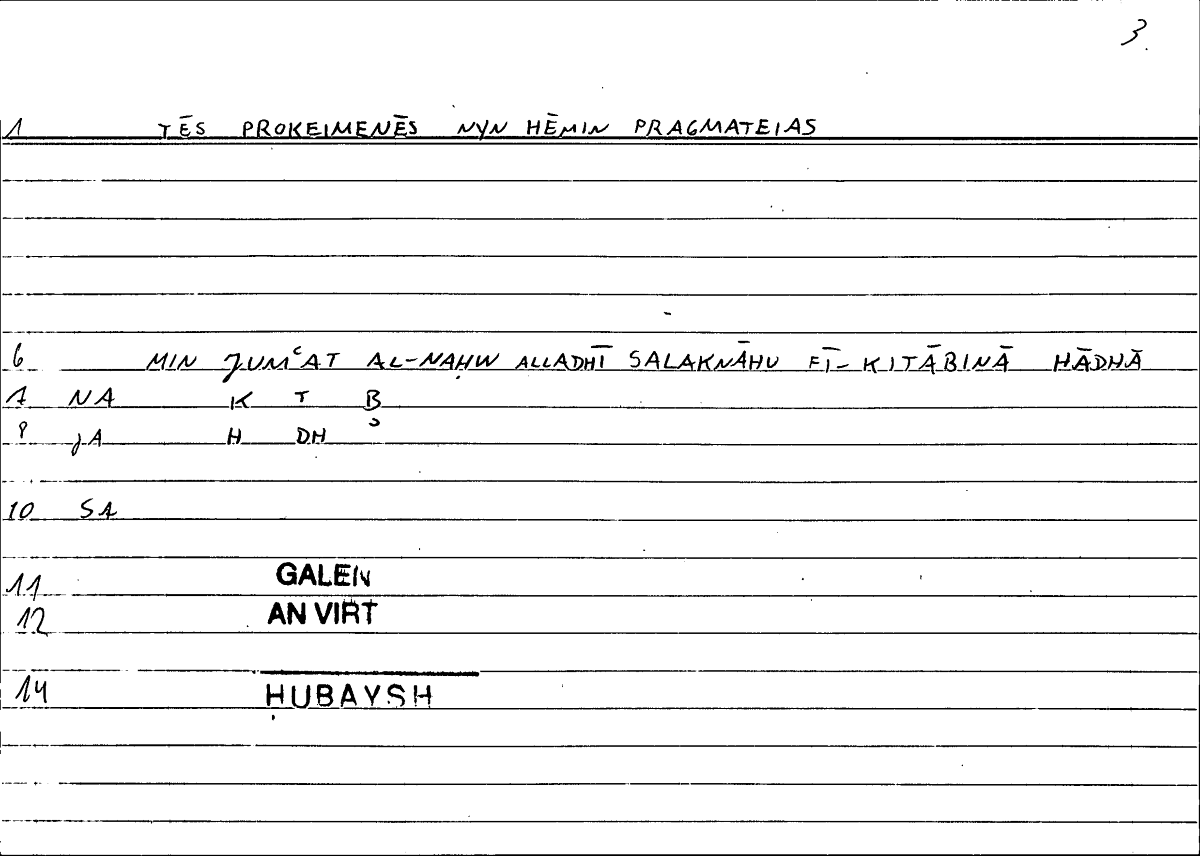 3.
1 TĒS PROKEIMENĒS NYN HĒMIN PRAGMATEIAS
6 MIN JUMʿAT AL-NAḤW ALLADHĪ SALAKNĀHU FĪ- KITĀBINĀ HĀDHĀ
7 NA K T B
8 JA H DH
10 SA
11 GALEN
12 AN VIRT
14 ḤUBAYSH